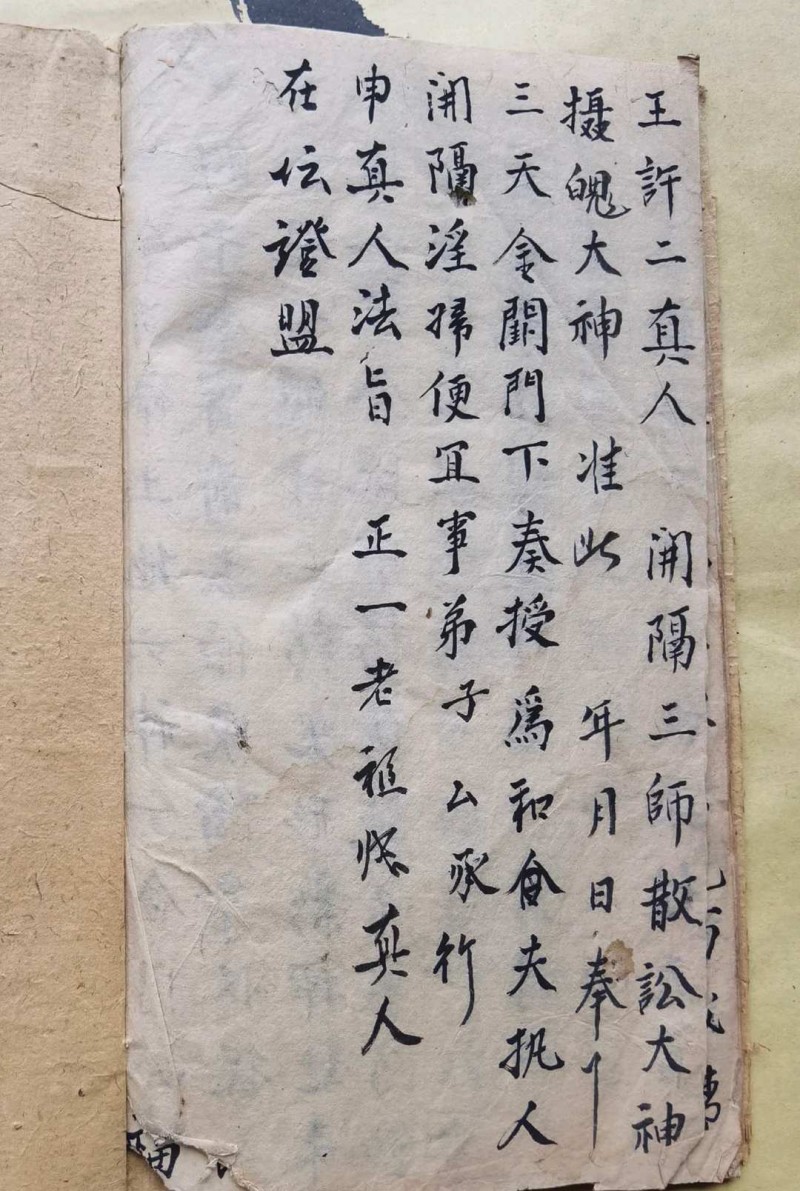 王許二真人 開隔三師散訟大神
攝魄大神 准此 年月日奉行
三天金闕門下奏授 爲和合夫執人
開隔淫掃便宜事弟子 厶承行
申真人法旨 正一老祖 真人
在坛證盟